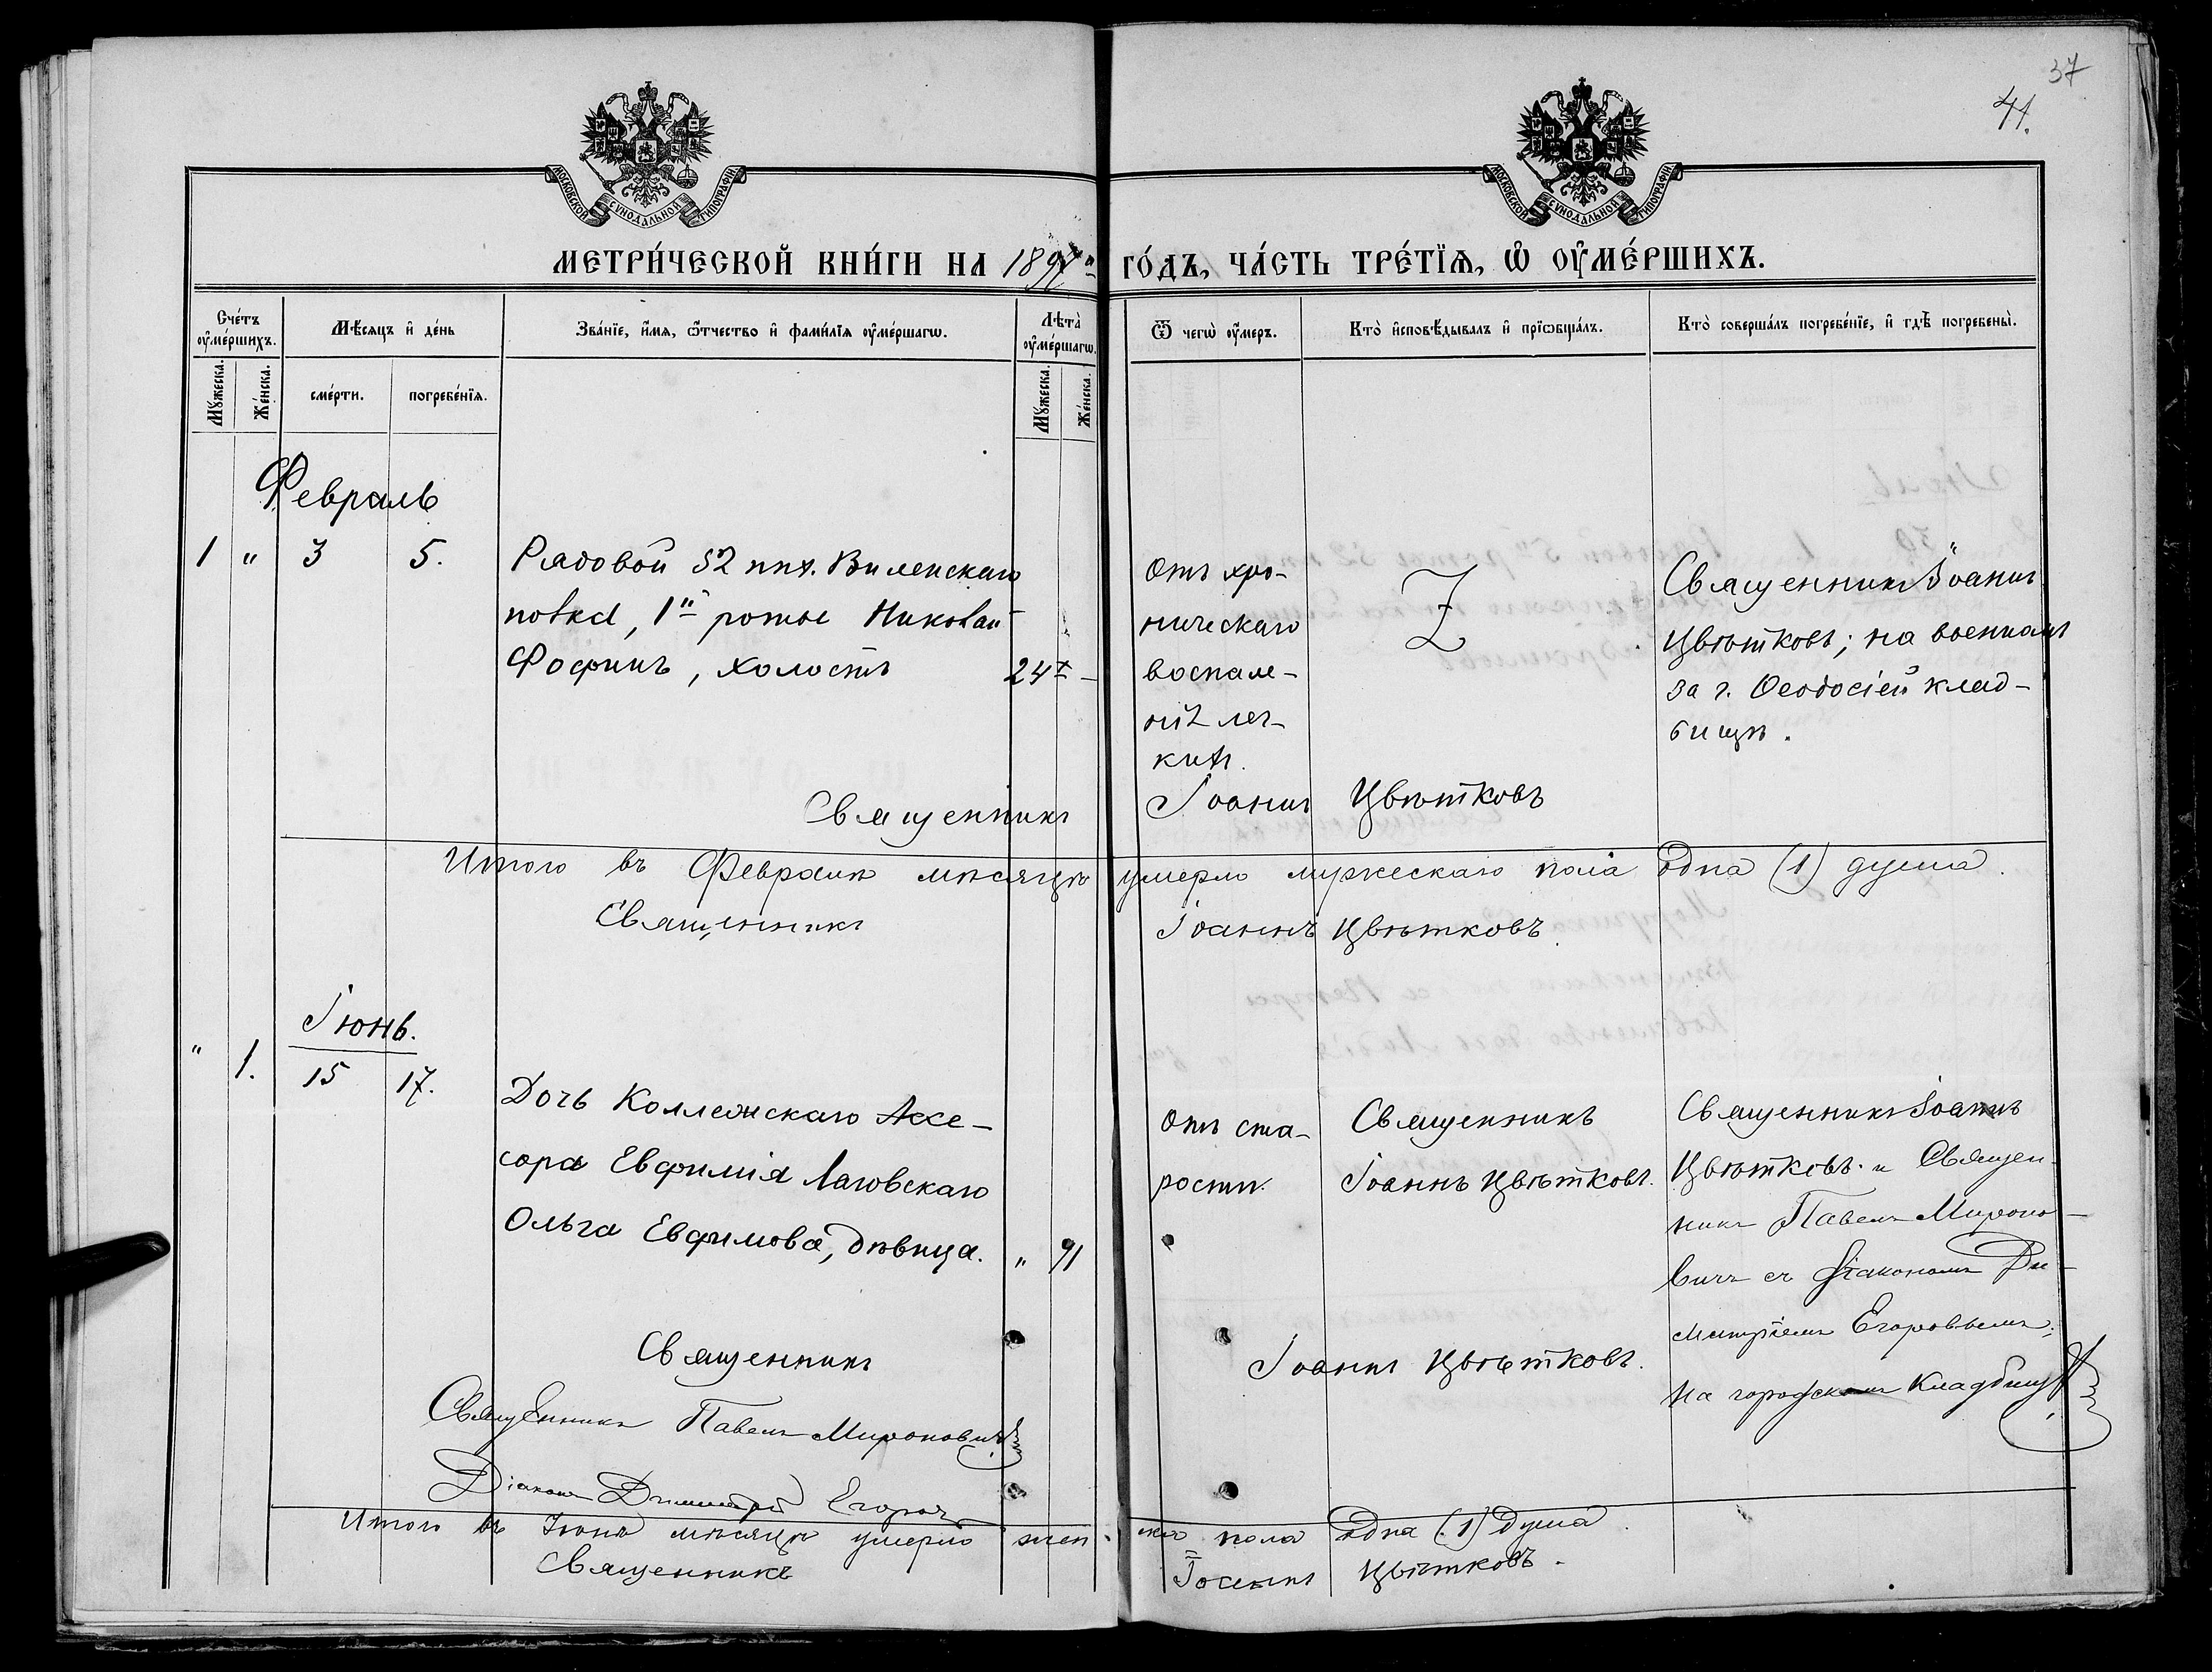 37
41.
МОСКОВСКОЙ СѴНОДАЛЬНОЙ ТИПОГРАФІИ
МОСКОВСКОЙ СѴНОДАЛЬНОЙ ТИПОГРАФІИ
МЕТРИ́ЧЕСКОЙ КНИ́ГИ НА 1897 ГО́ДЪ, ЧА́СТЬ ТРЕ́ТЇѦ, Ѽ ОУ҆МЕ́РШИХЪ.
Сче́тъ оу҆ме́ршихъ.
Мѣ́сѧцъ и҆ де́нь
Зва́нїе, и҆́мѧ, ѻ҆́тчество и҆ фамилїѧ оу҆ме́ршагѡ.
Лѣ́та оу҆ме́ршагѡ.
Ѿ чегѡ̀ оу҆́меръ.
Кто̀ и҆сповѣ́дывалъ и҆ прїѡбща́лъ.
Кто̀ соверша́лъ погребе́нїе, и҆ гдѣ̀ погребены̀.
Мꙋ́жеска.
Же́нска.
сме́рти.
погребе́нїѧ.
Мꙋ́жеска.
Же́нска.
Февраль
1 " 3 5.
Рядовой 52 пѣх. Виленскаго
полка, 1й роты Николай
Фофинъ, холостъ
24
Отъ хро-
ническаго
воспале-
нія лег-
кихъ.
Z
Священникъ Іоаннъ
Цвѣтковъ; на военномъ
за г. Ѳеодосіей клад-
бищѣ.
Священникъ Іоаннъ Цвѣтковъ
Итого въ Февралѣ мѣсяцѣ умерло мужескаго пола одна (1) душа.
Священникъ Іоаннъ Цвѣтковъ
Іюнь.
" 1. 15 17.
Дочь Коллежскаго Ассе-
сора Евфимія Лаговскаго
Ольга Евфимова, дѣвица.
" 91
Отъ ста-
рости.
Священникъ
Іоаннъ Цвѣтковъ.
Священникъ Іоаннъ
Цвѣтковъ и Священ-
никъ Павелъ Мироно-
вичъ съ Діакономъ Ди-
митріемъ Егоровымъ;
на городскомъ кладбищѣ
Священникъ Іоаннъ Цвѣтковъ.
Священникъ Павелъ Мироновичъ
Діаконъ Димитрій Егоровъ
Итого въ Іюнѣ мѣсяцѣ умерло женска пола одна (1) душа.
Священникъ Іоаннъ Цвѣтковъ.